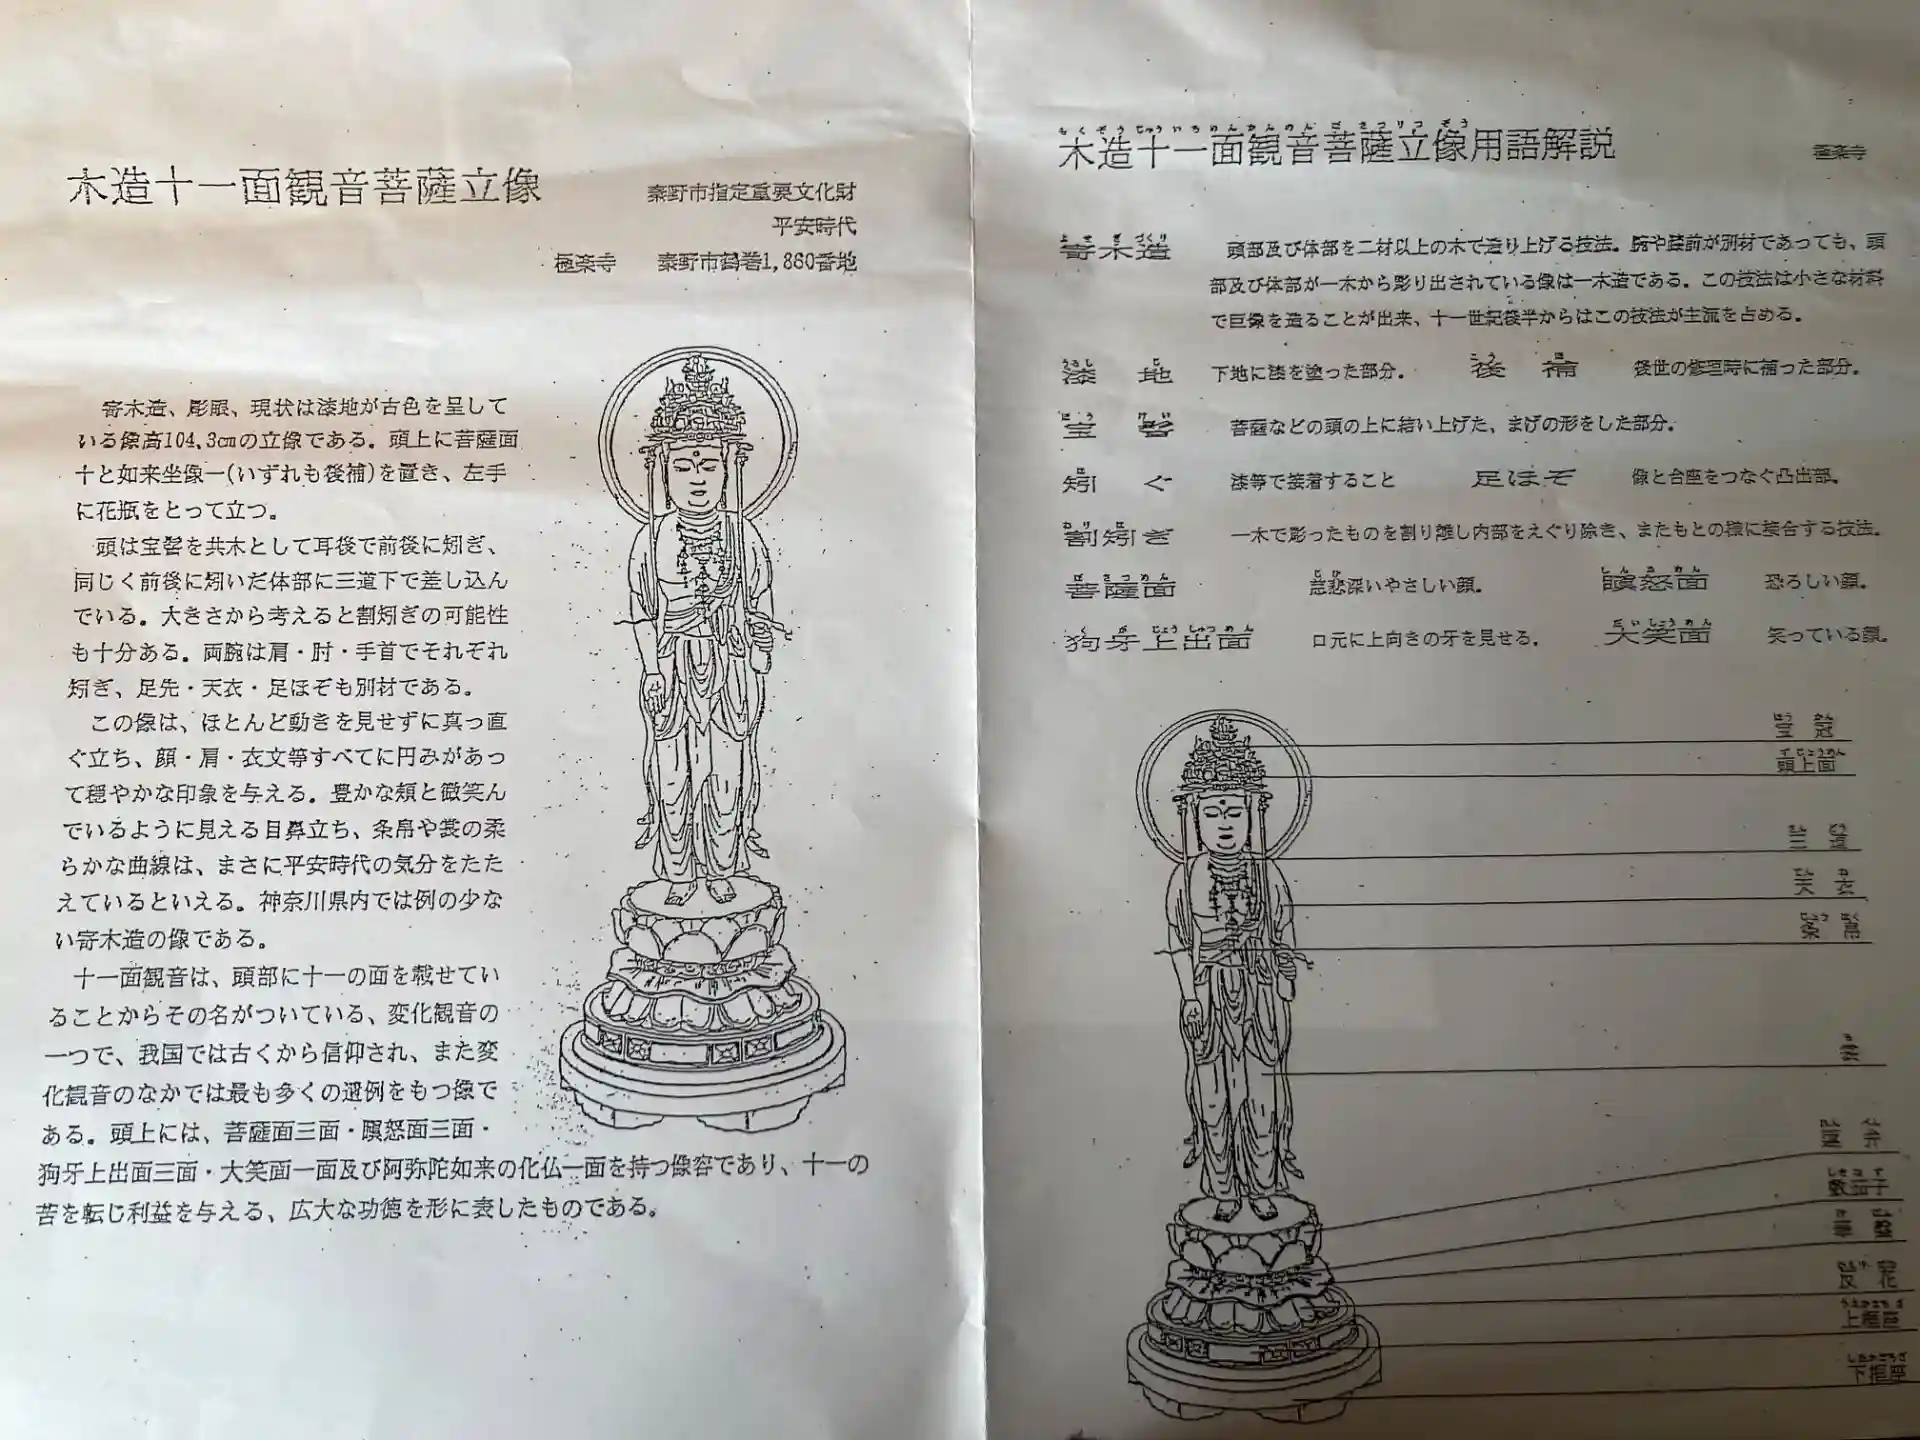 木造十一面観音菩薩立像
秦野市指定重要文化財
平安時代
極楽寺 秦野市鶴巻1,860番地
寄木造、彫眼、現状は漆地が古色を呈して
いる像高104.3㎝の立像である。頭上に菩薩面
十と如来坐像一(いずれも後補)を置き、左手
に花瓶をとって立つ。
頭は宝髻を共木として耳後で前後に矧ぎ、
同じく前後に矧いだ体部に三道下で差し込ん
でいる。大きさから考えると割矧ぎの可能性
も十分ある。両腕は肩・肘・手首でそれぞれ
矧ぎ、足先・天衣・足ほぞも別材である。
この像は、ほとんど動きを見せずに真っ直
ぐ立ち、顔・肩・衣文等すべてに円みがあっ
て穏やかな印象を与える。豊かな頬と微笑ん
でいるように見える目鼻立ち、条帛や裳の柔
らかな曲線は、まさに平安時代の気分をたた
えているといえる。神奈川県内では例の少な
い寄木造の像である。
十一面観音は、頭部に十一の面を載せてい
ることからその名がついている、変化観音の
一つで、我国では古くから信仰され、また変
化観音のなかでは最も多くの遺例をもつ像で
ある。頭上には、菩薩面三面・瞋怒面三面・
狗牙上出面三面・大笑面一面及び阿弥陀如来の化仏一面を持つ像容であり、十一の
苦を転じ利益を与える、広大な功徳を形に表したものである。
もくぞうじゅういちめんかんのんぼさつりつぞう
木造十一面観音菩薩立像用語解説
極楽寺
よせぎづくり
寄木造 頭部及び体部を二材以上の木で造り上げる技法。腕や膝前が別材であっても、頭
部及び体部が一木から彫り出されている像は一木造である。この技法は小さな材料
で巨像を造ることが出来、十一世紀後半からはこの技法が主流を占める。
うるし じ こう ほ
漆地 下地に漆を塗った部分。 後補 後世の修理時に補った部分。
ほう けい
宝髻 菩薩などの頭の上に結い上げた、まげの形をした部分。
は
矧ぐ 漆等で接着すること 足ほぞ 像と台座をつなぐ凸出部。
わり は
割矧ぎ 一木で彫ったものを割り離し内部をえぐり除き、またもとの様に接合する技法。
ぼさつめん じひ しんぬめん
菩薩面 慈悲深いやさしい顔。 瞋怒面 恐ろしい顔。
くがじょうしゅつめん だいしょうめん
狗牙上出面 口元に上向きの牙を見せる。 大笑面 笑っている顔。
ほう かん
宝冠
ずじょうめん
頭上面
さん どう
三道
てん ね
天衣
じょう はく
条帛
も
裳
れん
蓮弁
敷茄子
華盤
反花
上框座
下框座